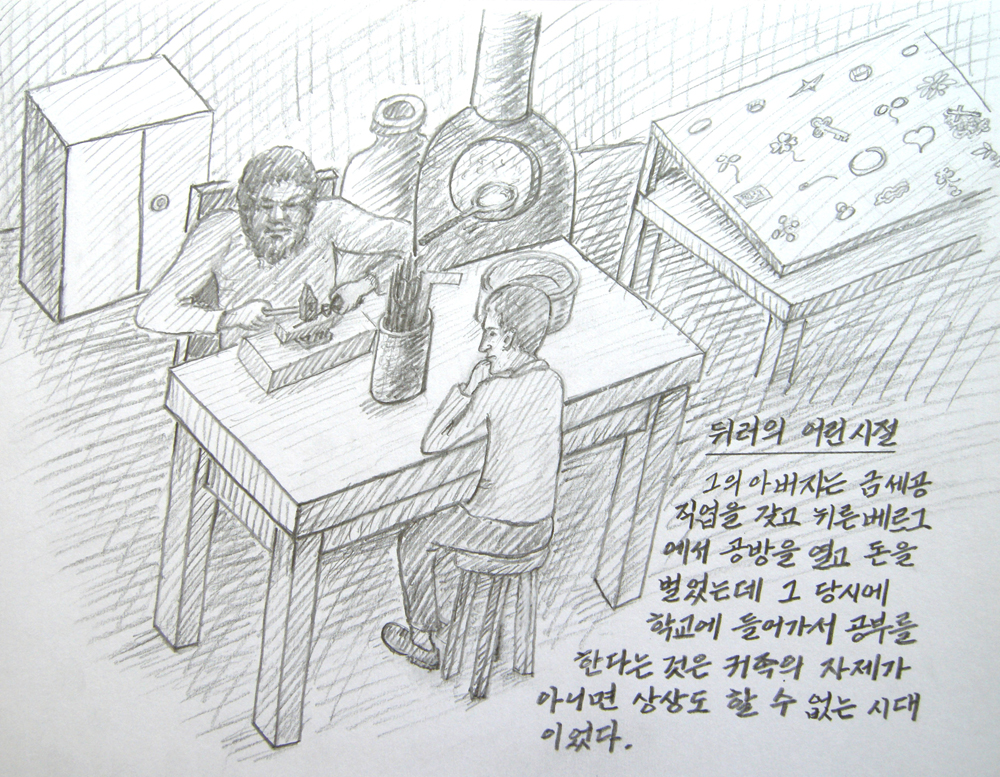 뒤러의 어린시절
그의 아버지는 금세공
직업을 갖고 뉘른베르그
에서 공방을 열고 돈을
벌었는데 그 당시에
학교에 들어가서 공부를
한다는 것은 귀족의 자제가
아니면 상상도 할 수 없는 시대
이었다.